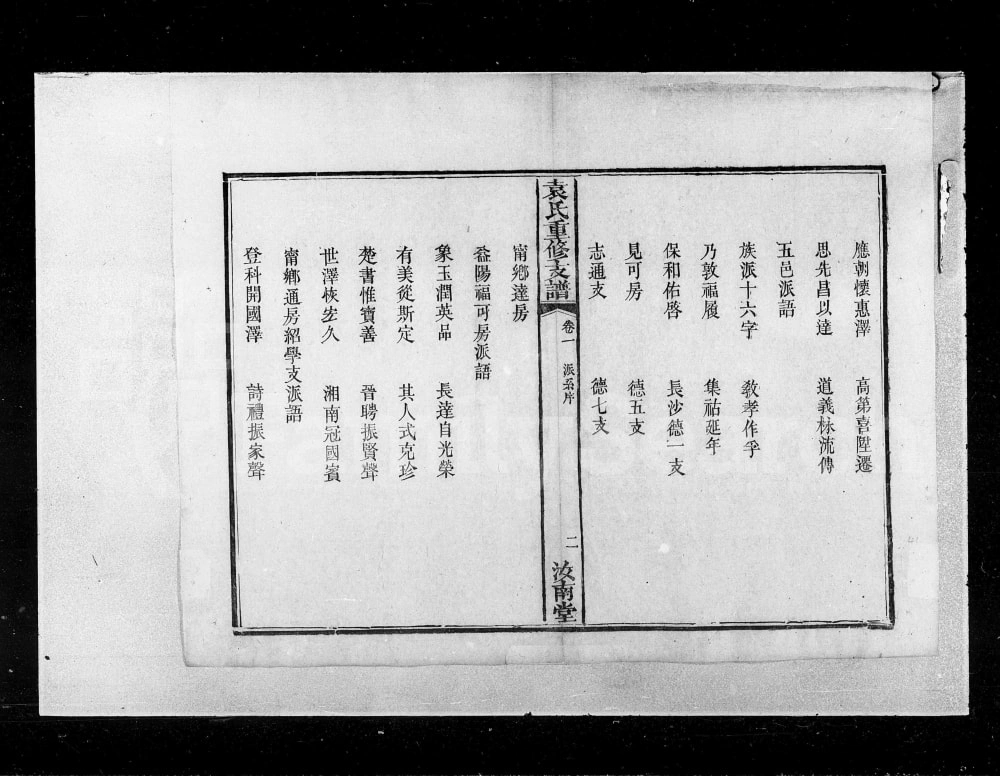 應朝懷惠澤　高第喜陞遷
思先昌以達　道義永流傳
五邑派語
族派十六字　敎孝作孚
乃敦福履　集祜延年
保和佑啓　長沙德一支
見可房　德五支
志通支　德七支
袁氏重修支譜　卷一　派系序　二　汝南堂
甯鄉達房
益陽福可房派語
象玉潤英品　長達自光榮
有美從斯定　其人式克珍
楚書惟寶善　晉聘振賢聲
世澤恢宏久　湘南冠國賓
甯鄉通房紹學支派語
登科開國澤　詩禮振家聲